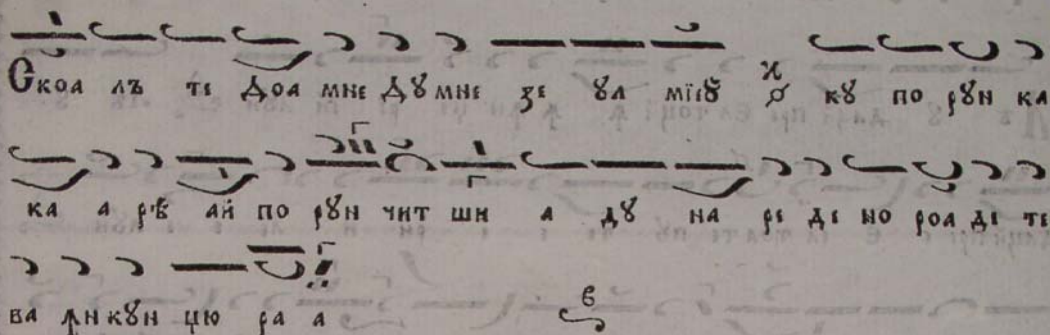 Скоа лъ те Доа мне Дꙋ мне зе ꙋл мїеꙋ кꙋ по рꙋн ка
ка а рѣ ай по рꙋн чит ши а дꙋ на ре де но роа де те
ва ꙟн кꙋн цю ра а